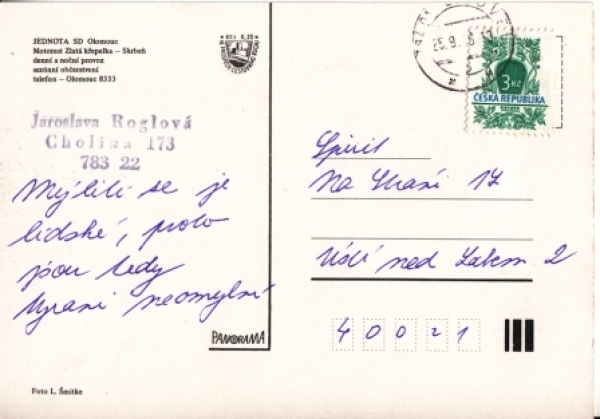 JEDNOTA SD Olomouc
Motorest Zlatá křepelka – Skrbeň
denní a noční provoz
sezónní občerstvení
telefon – Olomouc 8333
Jaroslava Roglová
Cholina 173
783 22
Mýliti se je
lidské, proto
jsou tedy
tyrani neomylní
PANORAMA
Foto L. Šmitke
3 Kč
ČESKA REPUBLIKA
Spirit
Na Skaní 17
Ústí nad Labem 2
40021